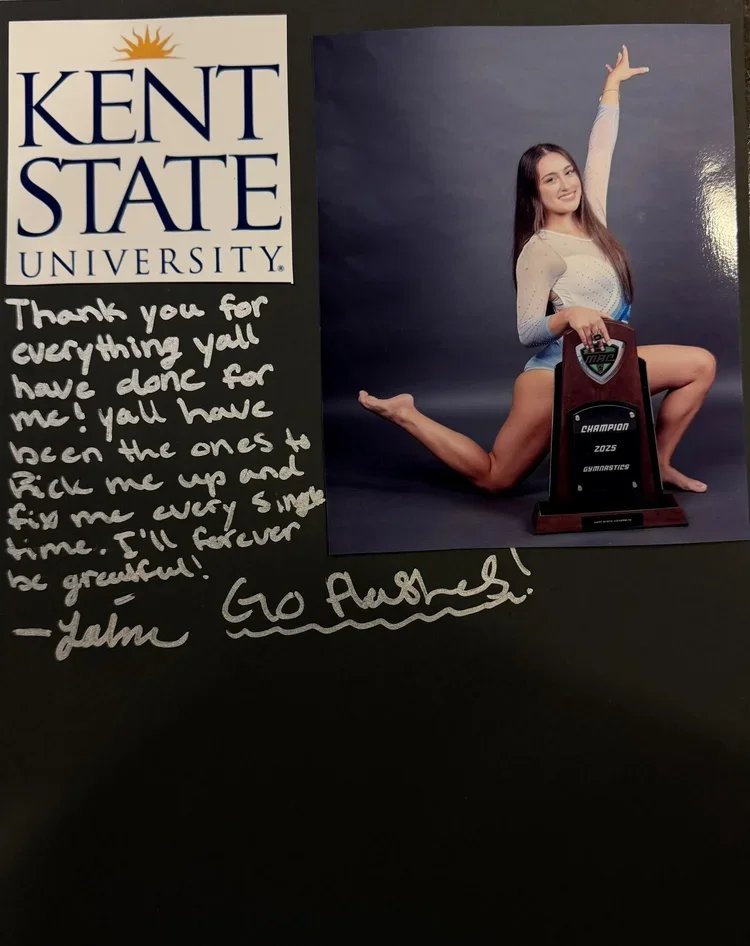 KENT
STATE
UNIVERSITY®
Thank you for
everything yall
have done for
me! yall have
been the ones to
Pick me up and
fix me every single
time. I'll forever
be greatful!
Go flashes!
MAC
CHAMPION
2025
GYMNASTICS